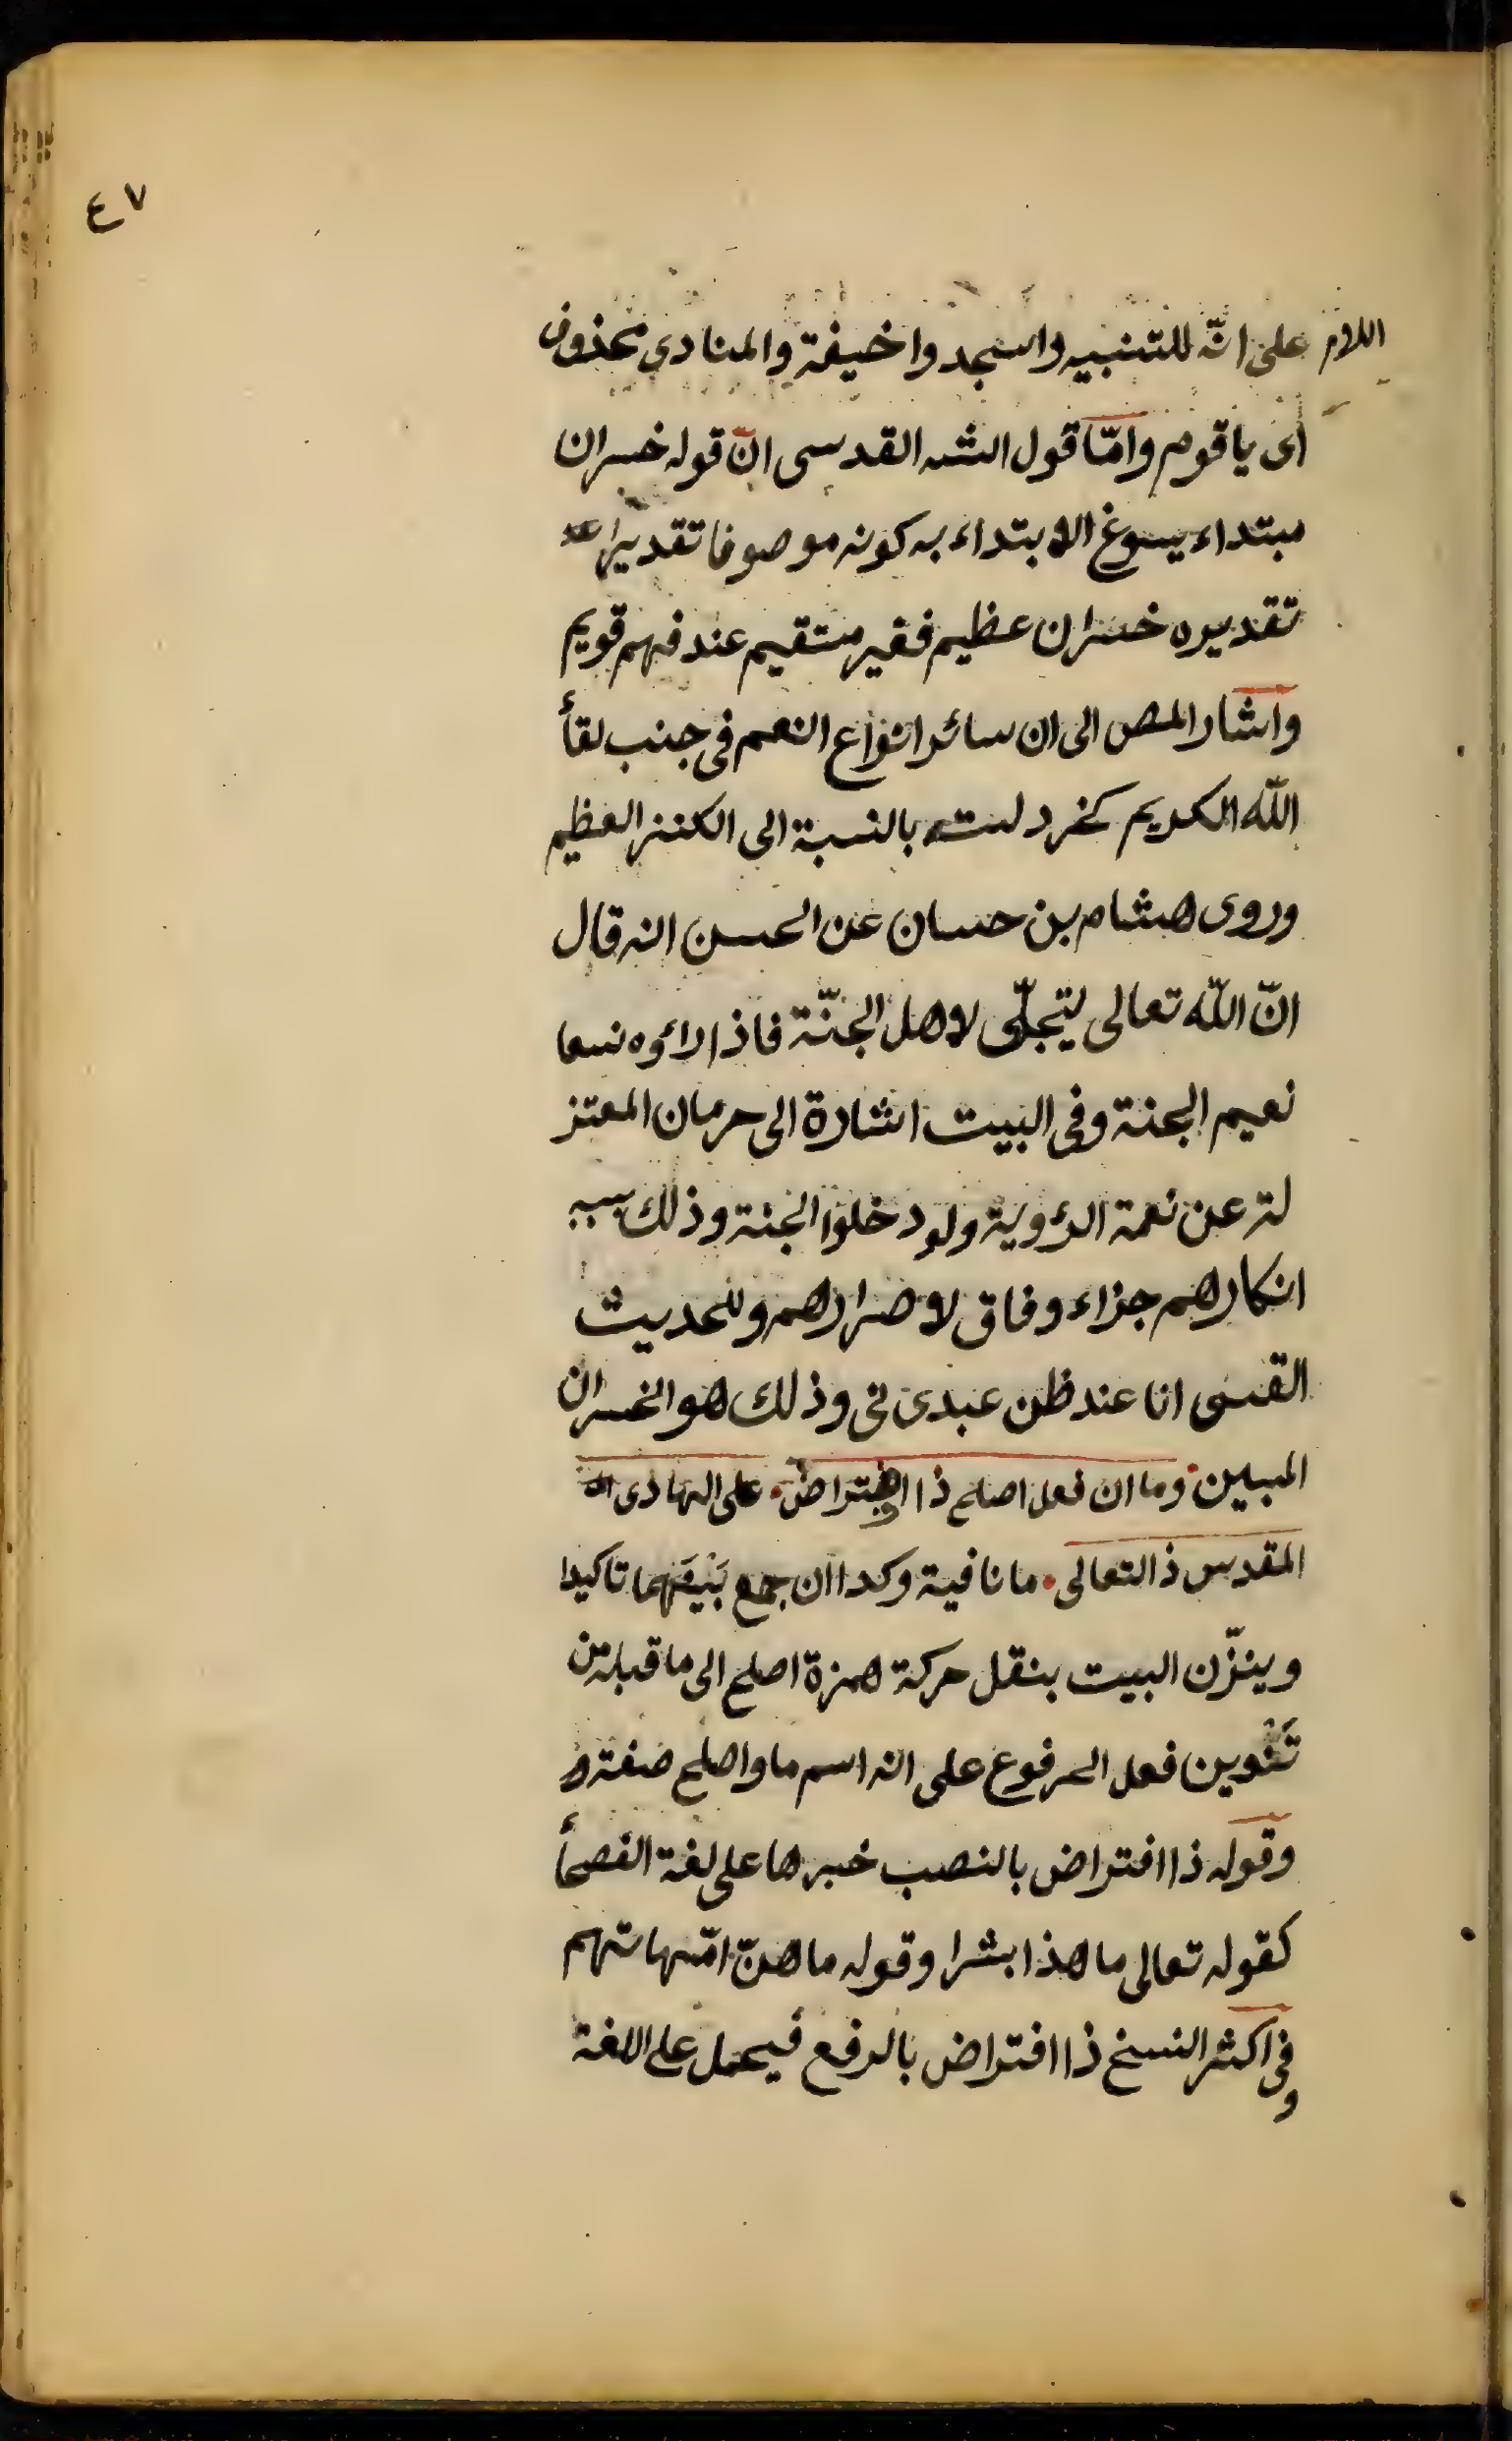 ٤٧
اللام على انّه للتنبيه واسجدوا خيفة والمنادى محذوف
اى يا قوم وامّا قول الشه القدسى انّ قوله خسران
مبتداء يسوغ الابتداء به كونه موصوفا تقديرا
تقديره خسران عظيم فغير مستقيم عند فهم قويم
واشار المص الى ان سائر انواع النعم فى جنب لقأ
اللّه الكريم كخردلة بالنسبة الى الكنز العظيم
وروى هشام بن حسان عن الحسن انه قال
انّ اللّه تعالى ليتجلّى لاهل الجنّة فاذا راؤه نسوا
نعيم الجنة وفى البيت اشارة الى حرمان المعتز
لة عن نعمة الرؤية ولو دخلوا الجنة وذلك بسبب
انكارهم جزاء وفاق لاصرارهم وللحديث
القدسى انا عند ظن عبدى بى وذلك هو الخسران
المبين وما ان فعل اصلح ذا افتراض على الهادى
المقدس ذ التعالى ما نافية وكذا ان جمع بينهما تاكيدا
وينزّن البيت بنقل حركة همزة اصلح الى ما قبله من
تنوين فعل المرفوع على انه اسم ما واصلح صفته و
وقوله ذا افتراض بالنصب خبرها على لغة الفصحأ
كقوله تعالى ما هذا بشرا وقوله ما هنّ امّهاتهم
وفى اكثر النسخ ذا افتراض بالرفع فيحمل على اللغة